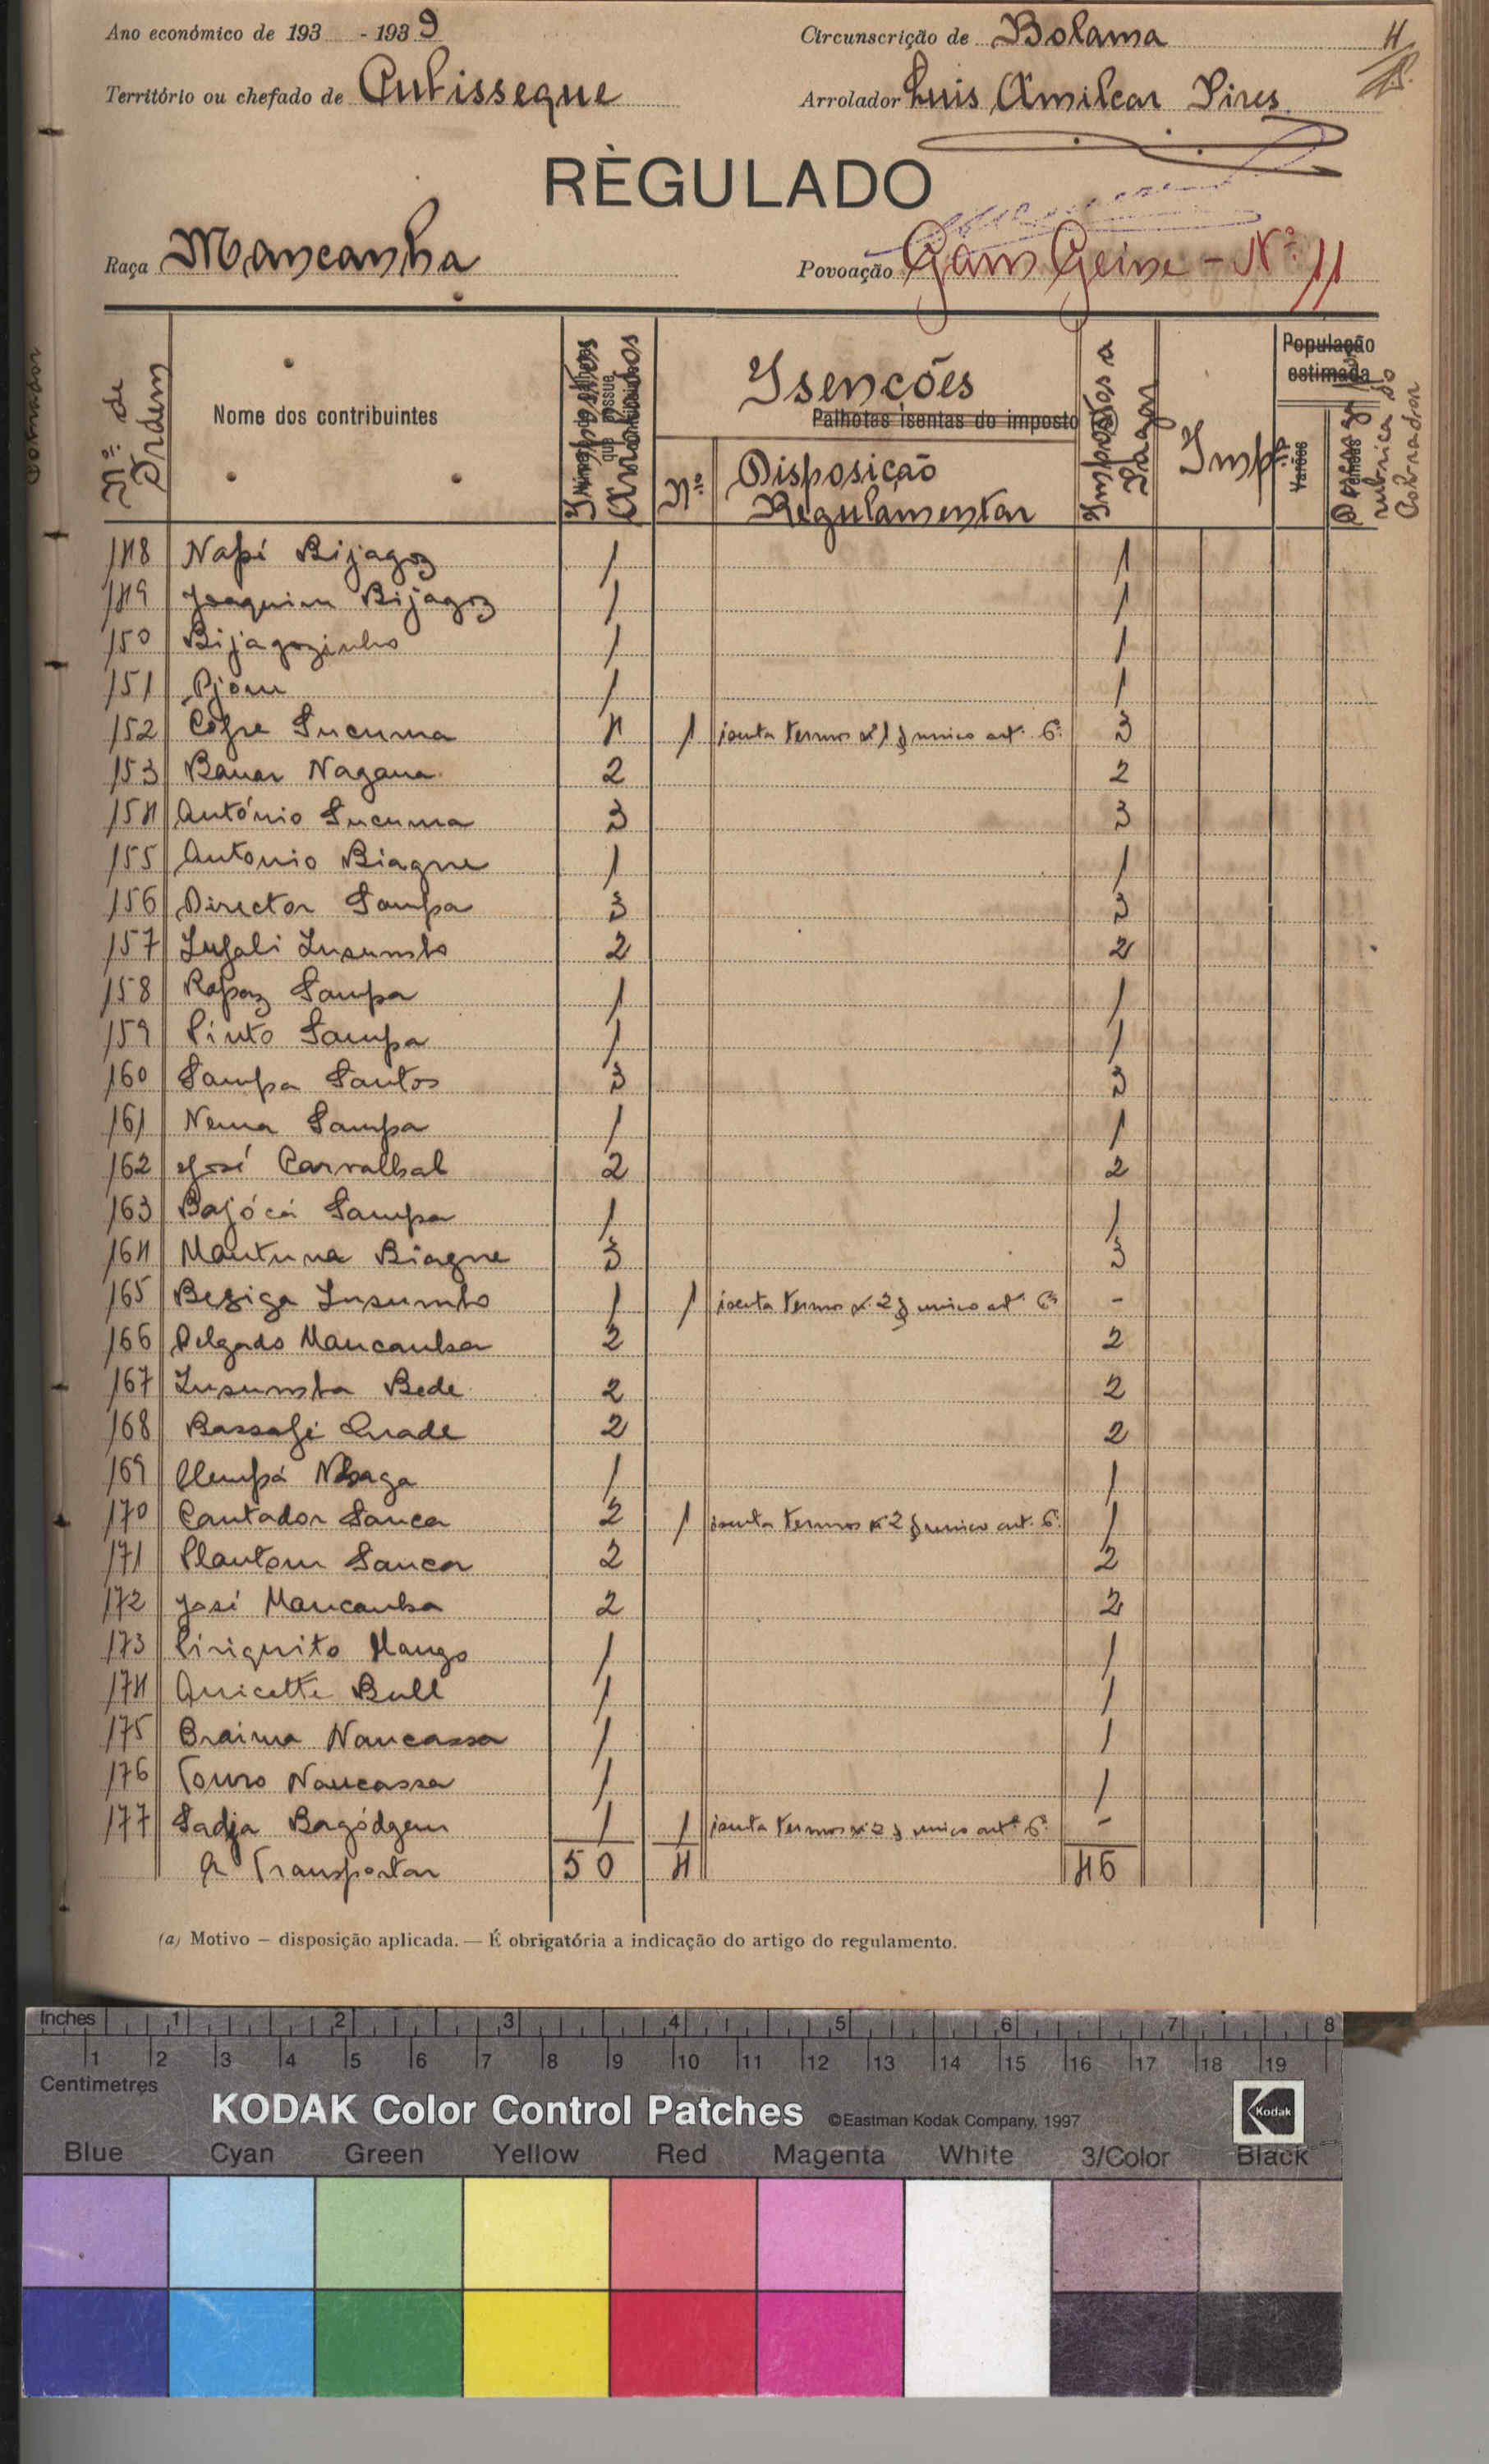 Ano económico de 193 - 1939
Circunscrição de Bolama
4
Território ou chefado de
Arrolador Luis Amilcar Pires
RÈGULADO
Raça Mancanha
Povoação Gam Geine - Nº. 11
Nº. de Ordem
Nome dos contribuintes
Isenções
Palhotas isentas do imposto
Nº
Disposição Regulamentar
Impostos a Pagar
Imp.
População estimada
Varões
rubrica do Cobrador
148 Napi Bijagoz 1 1
149 Joaquim Bijagoz 1 1
150 Bijagozinho 1 1
151 1 1
152 Cofre Sucuma 4 1 isenta termos nº 1 § unico artº. 6º. 3
153 Banar Nagana 2 2
154 António Sucuma 3 3
155 Antonio Biague 1 1
156 Director Sampa 3 3
157 2 2
158 Rapaz Sampa 1 1
159 Pinto Sampa 1 1
160 Sampa Santos 3 3
161 Nema Sampa 1 1
162 José Carvalhal 2 2
163 Bajócá Sampa 1 1
164 Mantuna Biague 3 3
165 1 1 isenta termos nº. 2 § unico artº. 6º -
166 Delgado Mancanha 2 2
167 Bede 2 2
168 Quade 2 2
169 1 1
170 Cantador Sanca 2 1 isenta termos nº 2 § unico art. 6º. 1
171 Plantom Sanca 2 2
172 José Mancanha 2 2
173 Piriquito Mango 1 1
174 Quicette Bull 1 1
175 Braima Nancassa 1 1
176 Touro Nancassa 1 1
177 Sadja Bagódgem 1 1 isenta termos nº 2 § unico artº 6º -
A Transportar 50 4 46
(a) Motivo — disposição aplicada. — É obrigatória a indicação do artigo do regulamento.
Inches 1 2 3 4 5 6 7 8
1 2 3 4 5 6 7 8 9 10 11 12 13 14 15 16 17 18 19
Centimetres
KODAK Color Control Patches ©Eastman Kodak Company, 1997 Kodak
Blue Cyan Green Yellow Red Magenta White 3/Color Black